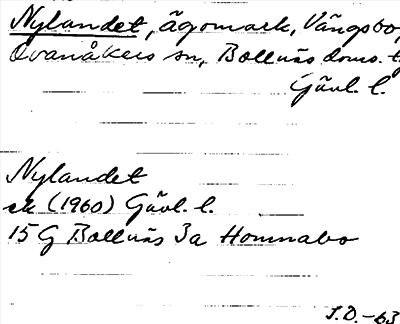 Nylandet, ägomark, Vängsbo,
Ovanåkers sn, Bollnäs doms. t
Gävl. l.
Nylandet
ek (1960) Gävl. l.
15 G Bollnäs 3a Homnabo
J.D.-63